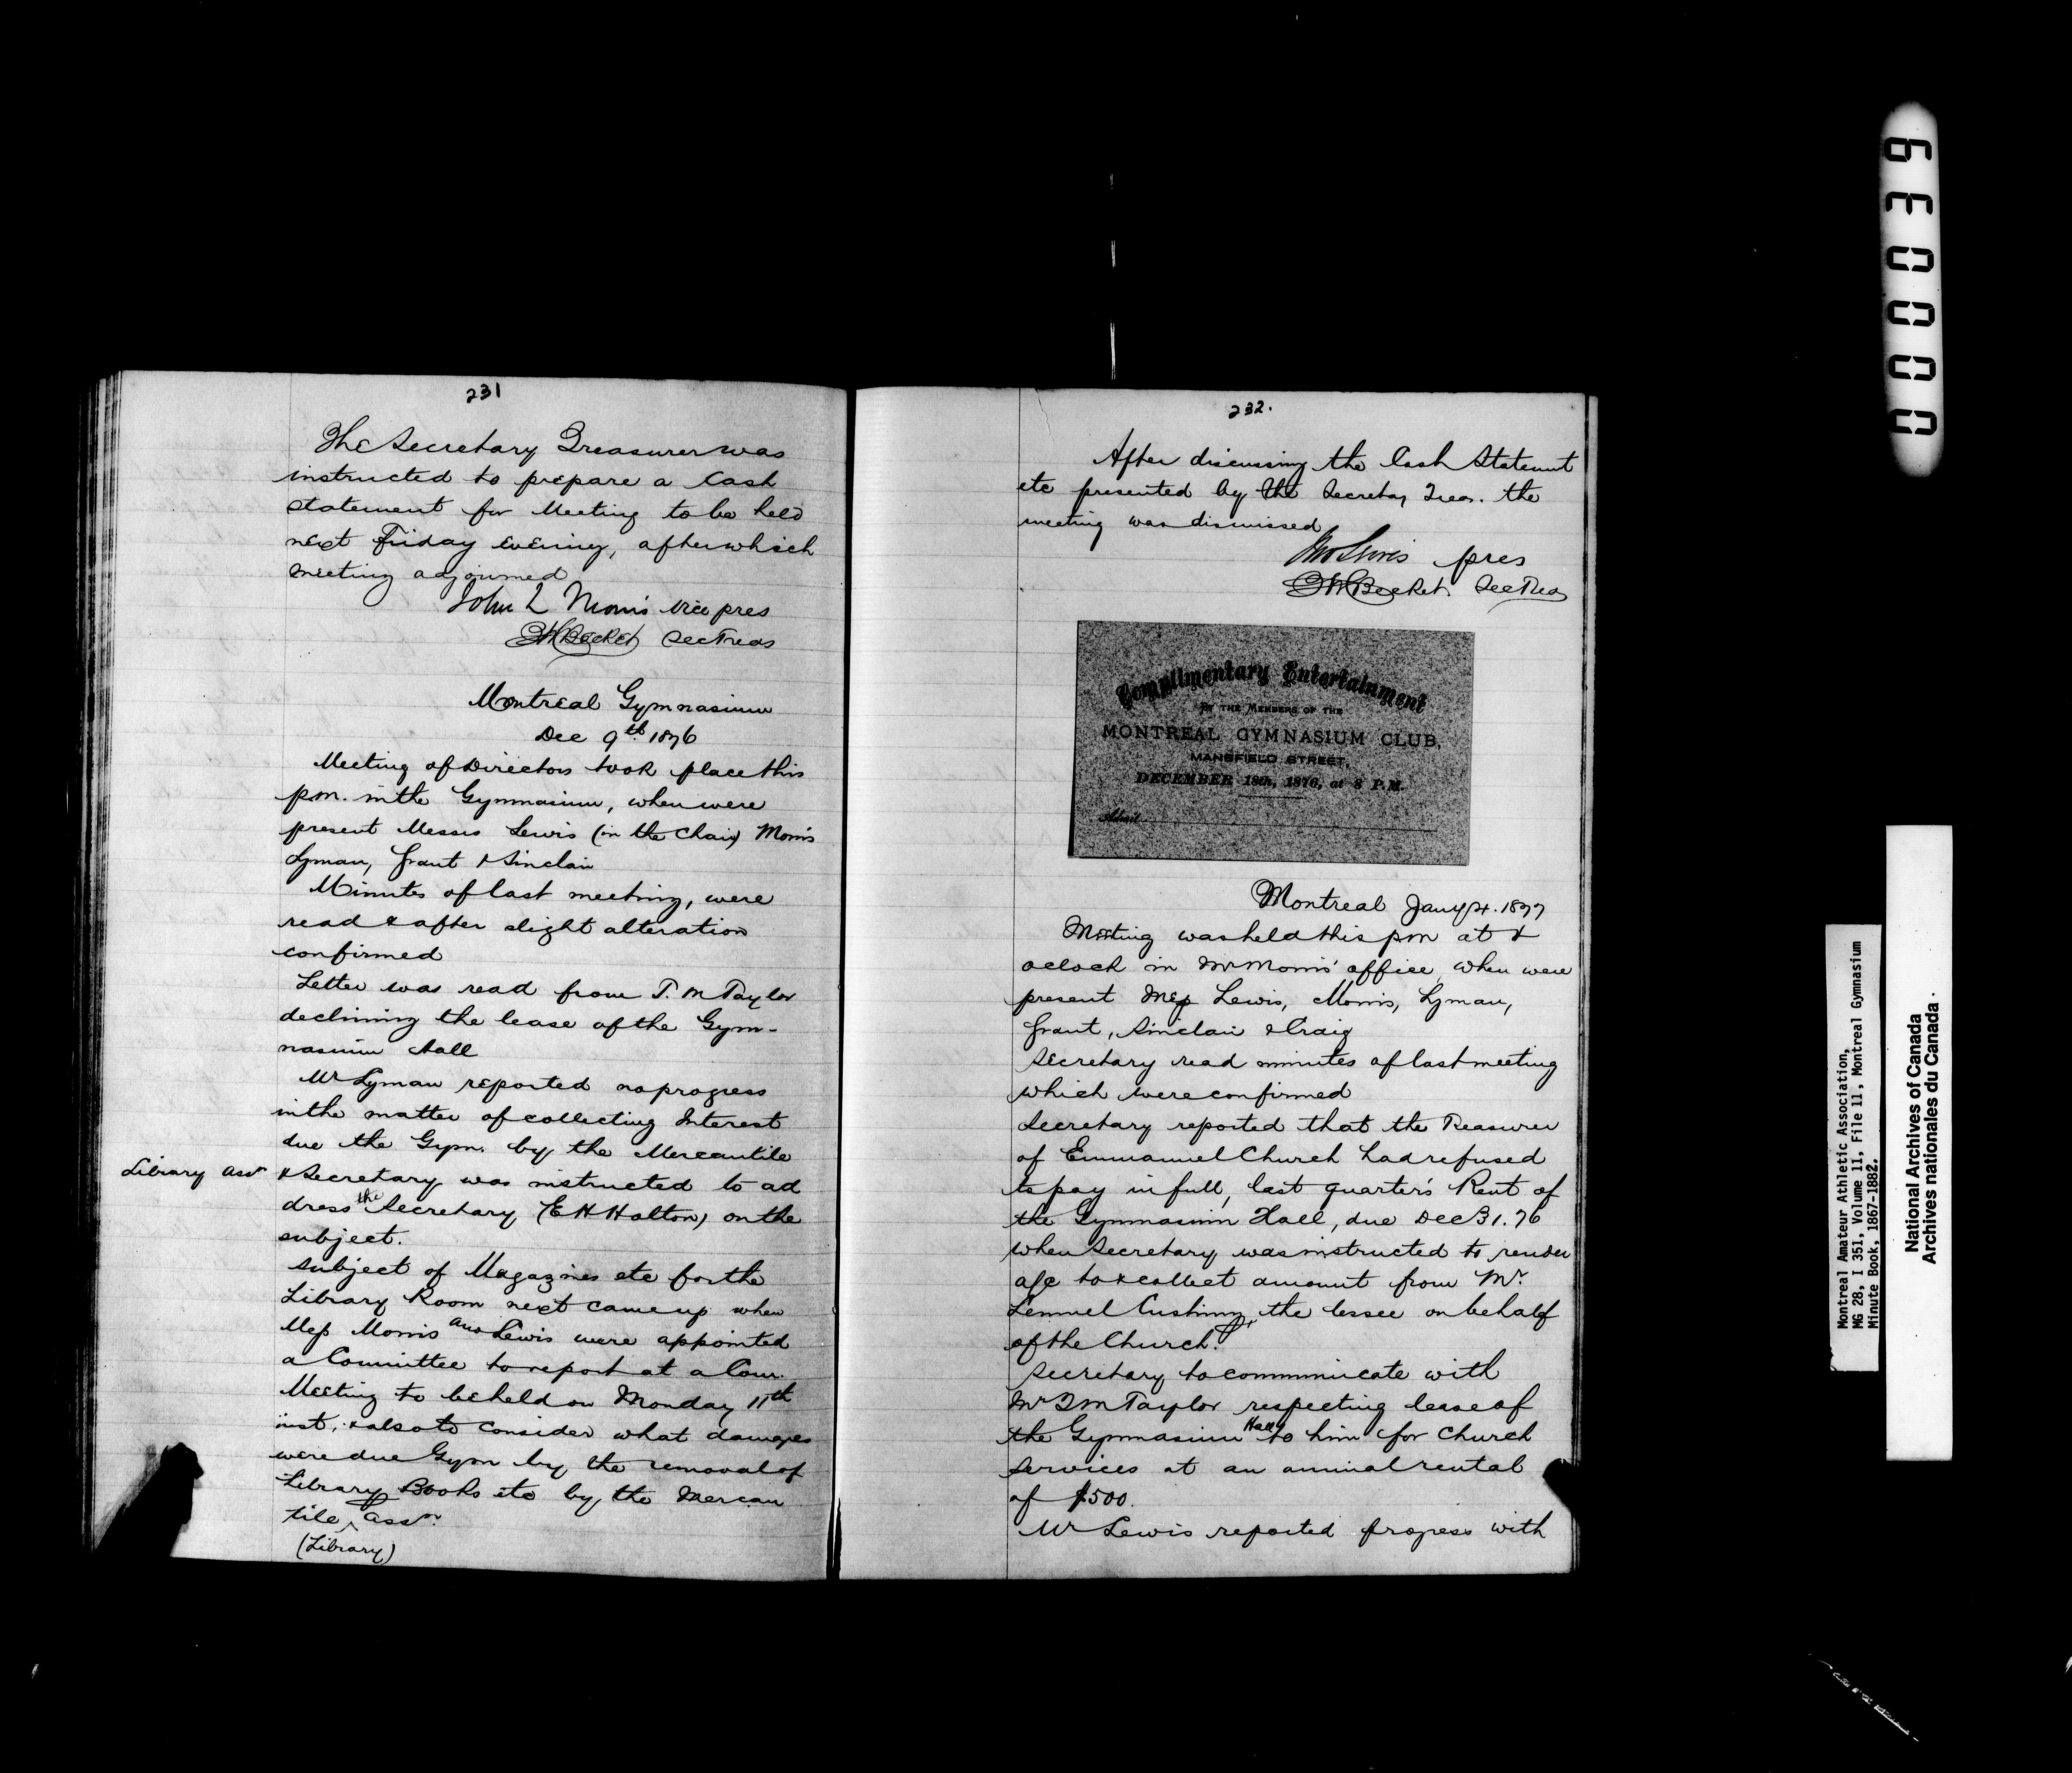 231
The Secretary Treasurer was
instructed to prepare a Cash
statement for Meeting to be held
next Friday evening, after which
meeting adjourned
John L Morris vice pres
Becket Sec Treas
Montreal Gymnasium
Dec 9th 1876
Meeting of Directors took place this
pm. in the Gymnasium, when were
present Messrs Lewis (in the Chair) Morris
Lyman, Grant & Sinclair
Minutes of last meeting, were
read & after slight alteration
confirmed
Letter was read from T. M Taylor
declining the lease of the Gym-
nasium Hall
Mr Lyman reported no progress
in the matter of collecting Interest
due the Gym. by, the Mercantile
Library Assn & Secretary was instructed to ad
dress the Secretary (E H Halton) on the
subject.
Subject of Magazines etc for the
Library Room next came up when
Mess Morris and Lewis were appointed
a Committee to report at a Com.
Meeting to be held on Monday 11th
inst, & also to consider what damages
were due Gym by the removal of
Library Books etc by, the Mercan
tile ^ Assn.
(Library)
232.
After discussing the Cash Statemnt
etc presented by the Secretary Treas. the
meeting was dismissed
Jno Lewis pres
Becket. Sec Treas
Complimentary Entertainment
BY THE MEMBERS OF THE
MONTREAL GYMNASIUM CLUB,
MANSFIELD STREET,
DECEMBER 18th, 1876, at 8 P.M.
Admit
Montreal Jany 4. 1877
Meeting was held this pm at 4
oclock in Mr Morris' office, when were
present Mess Lewis, Morris, Lyman,
Grant, Sinclair & Craig
Secretary read minutes of last meeting
which were confirmed
Secretary reported that the Treasurer
of Emmanuel Church had refused
to pay in full, last quarter's Rent of
the Gymnasium Hall, due Dec 31. 76
when Secretary was instructed to render
a/c to & collect amount from Mr.
Lemuel Cushing, the lessee on behalf
of the Church.
Secretary to communicate with
Mr T M Taylor respecting lease of
the Gymnasium Hall to him for Church
services at an annual rental
of $500.
Mr Lewis reported progress with
000039
Montreal Amateur Athletic Association,
MG 28, I 351, Volume 11, File 11, Montreal Gymnasium
Minute Book, 1867-1882.
National Archives of Canada
Archives nationales du Canada.